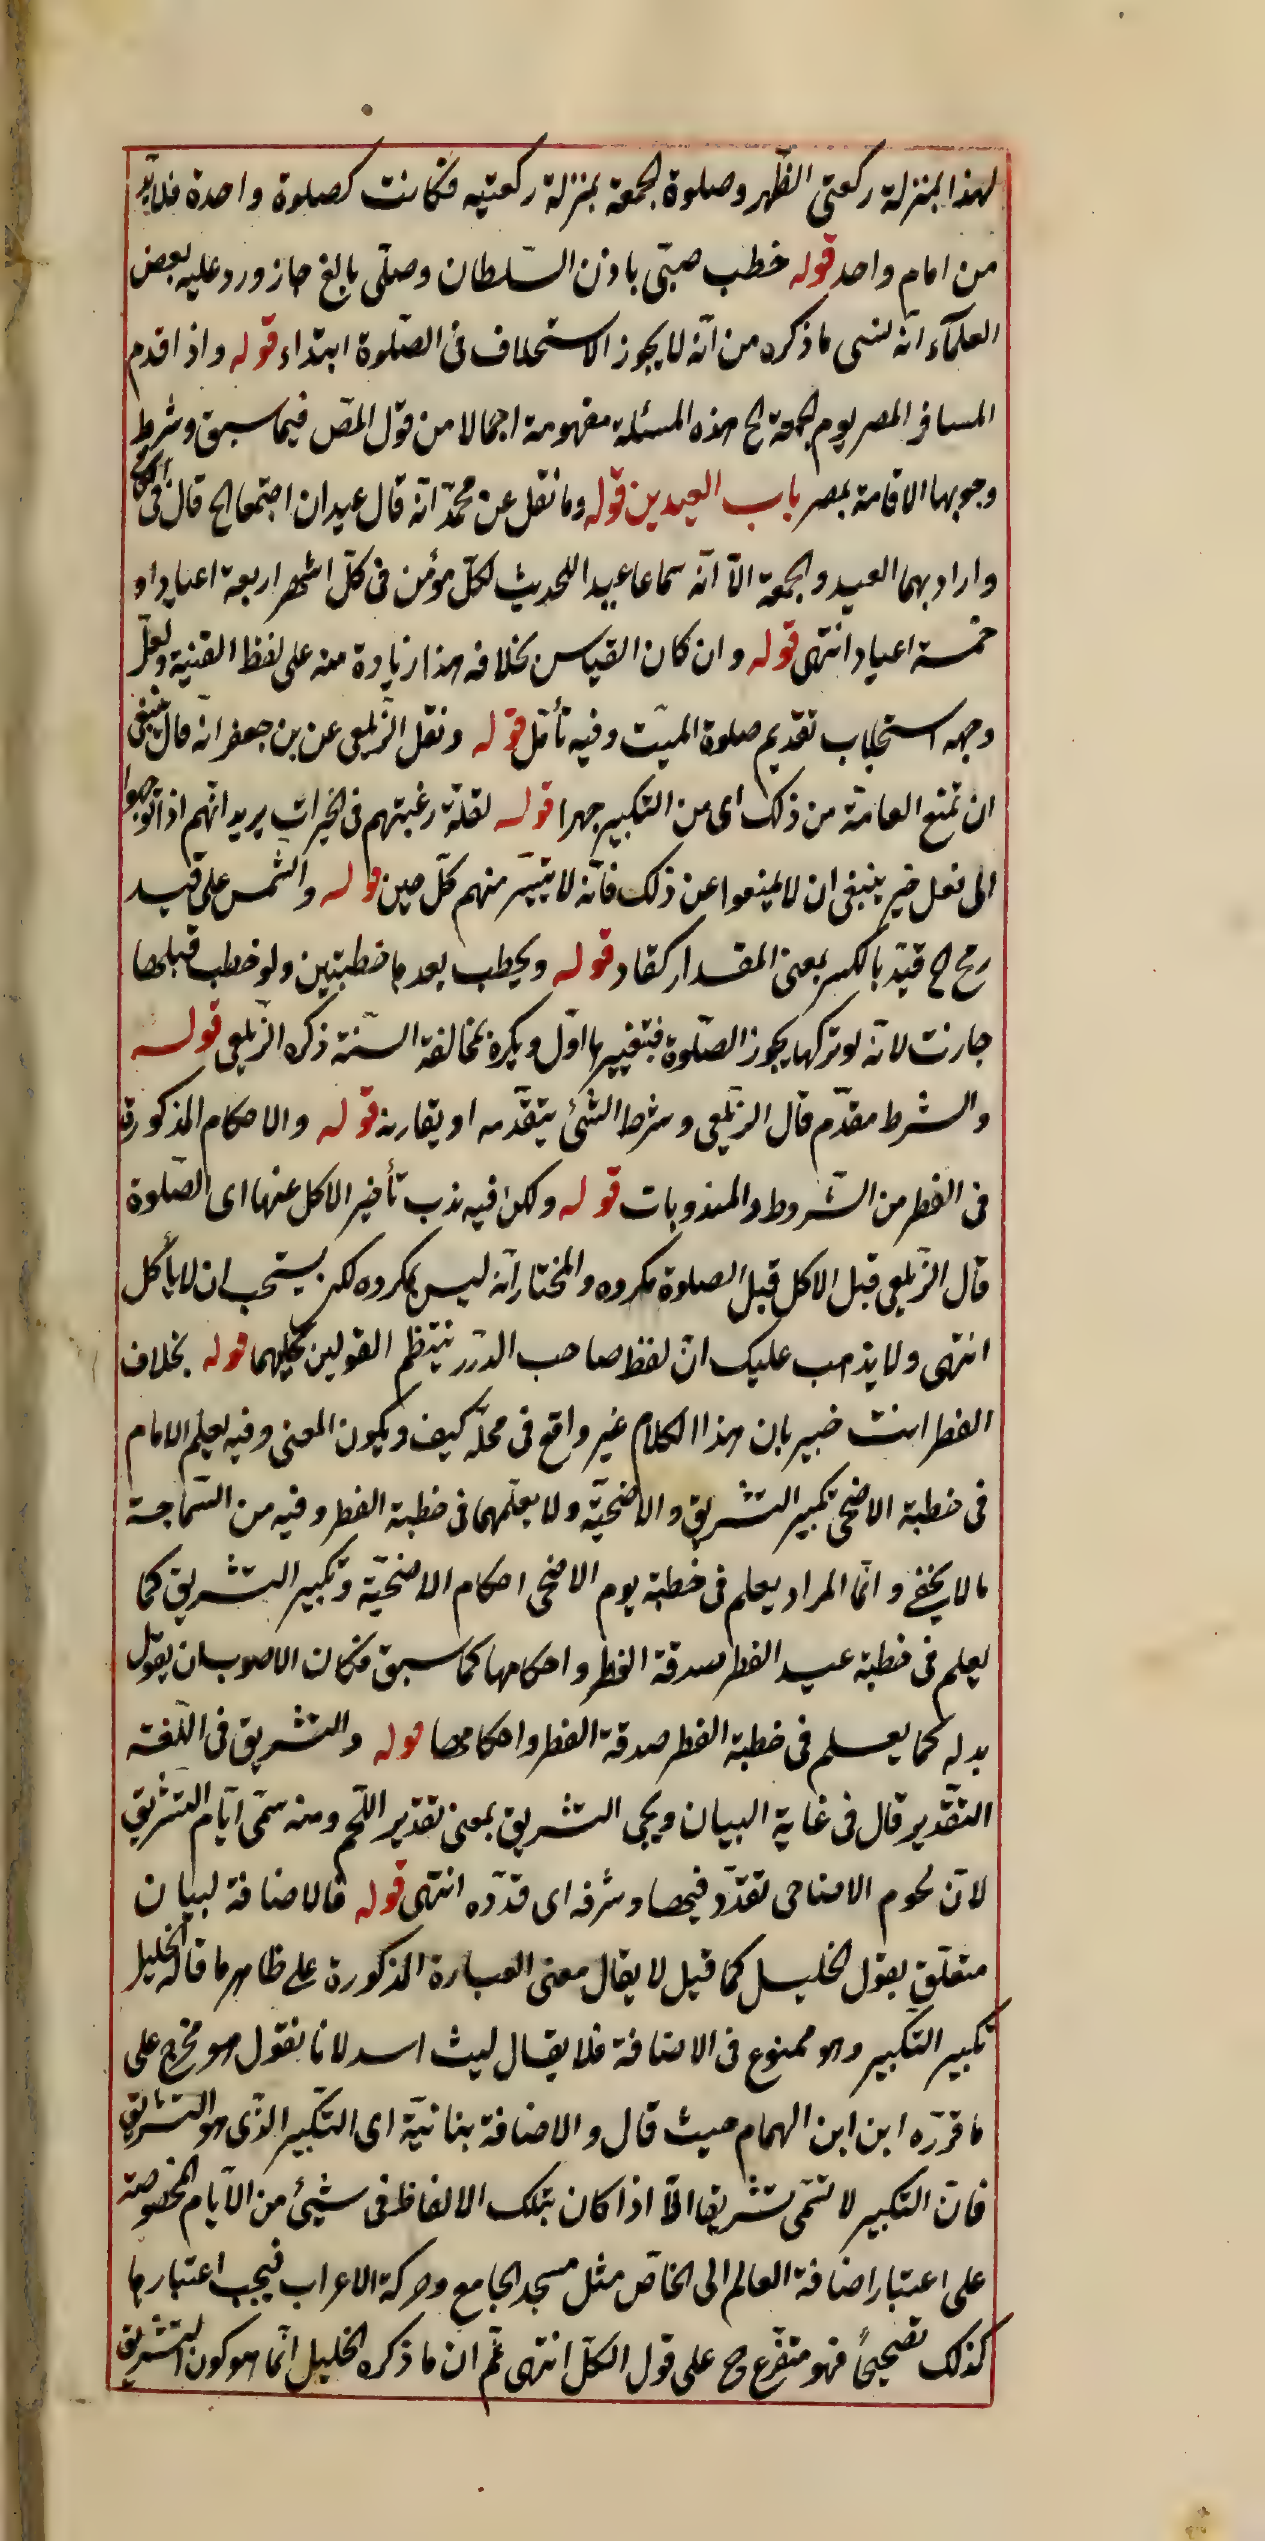 لهذا بمنزلة ركعتى الظهر وصلوة الجمعة بمنزلة ركعتيه فكانت كصلوة واحدة فلا بد
من امام واحد قوله خطب صبىّ باذن السّلطان وصلّى بالغ جاز ورد عليه بعض
العلمآء انّه لنسى ما ذكره من انّه لا يجوز الاستخلاف فى الصّلوة ابتداء قوله واذا قدم
المسافر المصر يوم الجمعة الخ هذه المسئلة مفهومة اجمالا من قول المص فيما سبق وشرط
وجوبها الاقامة بمصر باب العيدين قوله وما نقل عن محمّد انّه قال عيدان اجتمعا الخ قال فى
واراد بهما العيد والجمعة الّا انّه سماعا عيد اللحديث لكلّ مؤمن فى كلّ اشهر اربعة اعياد او
خمسة اعياد انتهى قوله وان كان القياس بخلافه هذا زيادة منه على لفظ القنية ولعلّ
وجهه استحباب تقديم صلوة الميّت وفيه تأمّل قوله ونقل الزّيلعى عن بن جعفر انّه قال ينبغى
ان تمنع العامّة من ذلك اى من التكبير جهرا قوله لقلّة رغبتهم فى الخيرات يريد انّهم اذا توجهوا
الى فعل خير ينبغى ان لا يمنعوا عن ذلك فانّه لا يتيسّر منهم كلّ حين قوله والشّمس على قيد
رمح الخ قيد بالكسر بمعنى المقدار كقاد قوله ويخطب بعدها خطبتين ولو خطب قبلها
جازت لانّه لو تركها يجوز الصّلوة فبتغييرها اوّل ويكره بمخالفة السّنة ذكره الزّيلعى قوله
والشرط مقدّم قال الزيلعى وشرط الشّئ يتقدّمه او يقارنه قوله والاحكام المذكورة
فى الفطر من الشّروط والمندوبات قوله ولكن فيه ندب تأخير الاكل عنها اى الصّلوة
قال الزّيلعى قبل الاكل قبل الصلوة مكروه والمختار انّه ليس بمكروه لكن يستحب ان لا يأكل
انتهى ولا يذهب عليك انّ لفظ صاحب الدّرر ينتظم القولين كليهما قوله بخلاف
الفطر انت خبير بان هذا الكلام غير واقع فى محلّه كيف ويكون المعنى وفيه يعلم الامام
فى خطبة الاضحى تكبير التشريق والاضحيّة ولا يعلّمهما فى خطبة الفطر وفيه من السّماجة
ما لا يخفى وانّما المراد يعلم فى خطبة يوم الاضحى احكام الاضحيّة وتكبير التشريق كما
يعلم فى خطبة عيد الفطر صدقة الفطر واحكامها كما سبق فكان الاصوب ان يقول
بدله كما يعلم فى خطبة الفطر صدقة الفطر واحكامها قوله والتشريق فى اللّغة
التّقدير قال فى غاية البيان ويجى التشريق بمعنى تقدير اللّحم ومنه سمّى ايّام التشريق
لانّ لحوم الاضاحى تقدّد فيها وشرقه اى قدّده انتهى قوله فالاضافة لبيان
متعلّق بقول الخليل كما قيل لا يقال معنى العبارة المذكورة على ظاهر ما قاله الخليل
تكبير التكبير وهو ممنوع فى الاضافة فلا يقال ليث اسد لانا نقول هو مخرج على
ما قرّره ابن ابن الهمام حيث قال والاضافة بنانيّة اى التكبير الذّى هو التشريق
فانّ التكبير لا تسمّى تشريقا الّا اذا كان بتلك الالفاظ فى شيئ من الايّام المخصوصة
على اعتبار اضافة العالم الى الخاصّ مثل مسجد الجامع وحركة الاعراب فيجب اعتبارها
كذلك تصحيحا فهو متفرّع ح على قول الكلّ انتهى ثمّ ان ما ذكره الخليل انّما هو كون التشريق